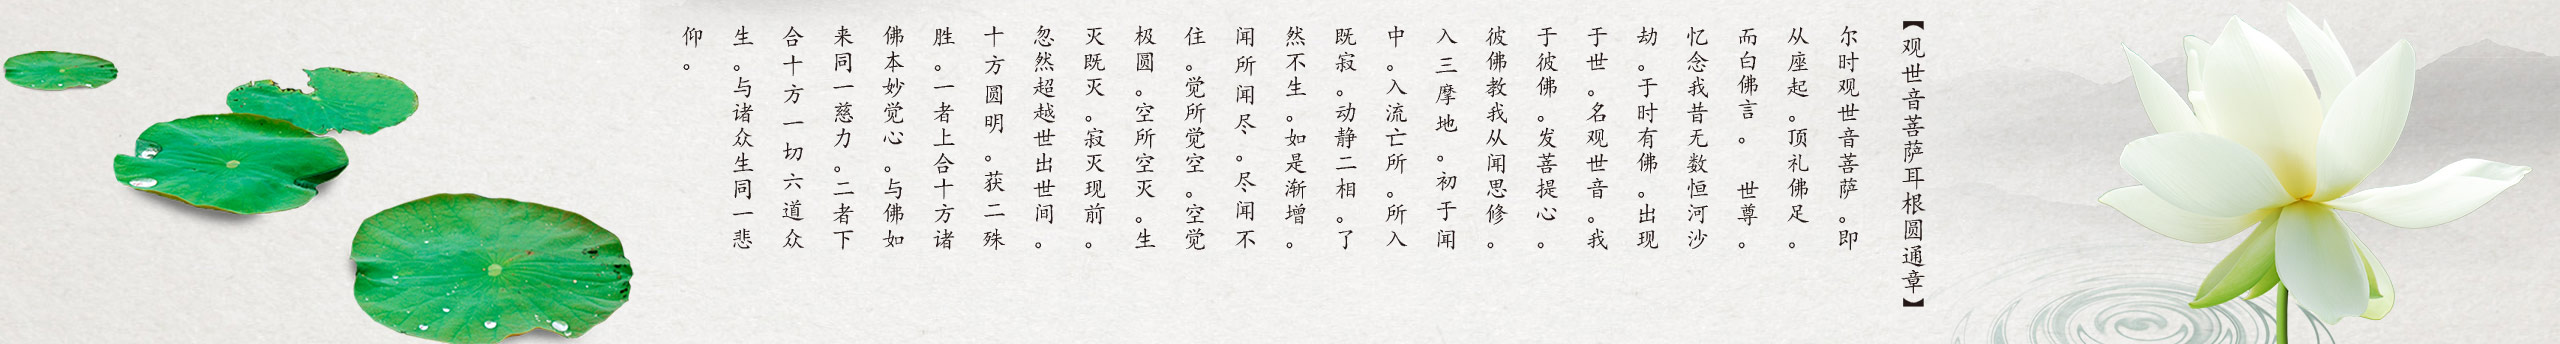 【观世音菩萨耳根圆通章】
尔时观世音菩萨。即
从座起。顶礼佛足。
而白佛言。世尊。
忆念我昔无数恒河沙
劫。于时有佛。出现
于世。名观世音。我
于彼佛。发菩提心。
彼佛教我从闻思修。
入三摩地。初于闻
中。入流亡所。所入
既寂。动静二相。了
然不生。如是渐增。
闻所闻尽。尽闻不
住。觉所觉空。空觉
极圆。空所空灭。生
灭既灭。寂灭现前。
忽然超越世出世间。
十方圆明。获二殊
胜。一者上合十方诸
佛本妙觉心。与佛如
来同一慈力。二者下
合十方一切六道众
生。与诸众生同一悲
仰。